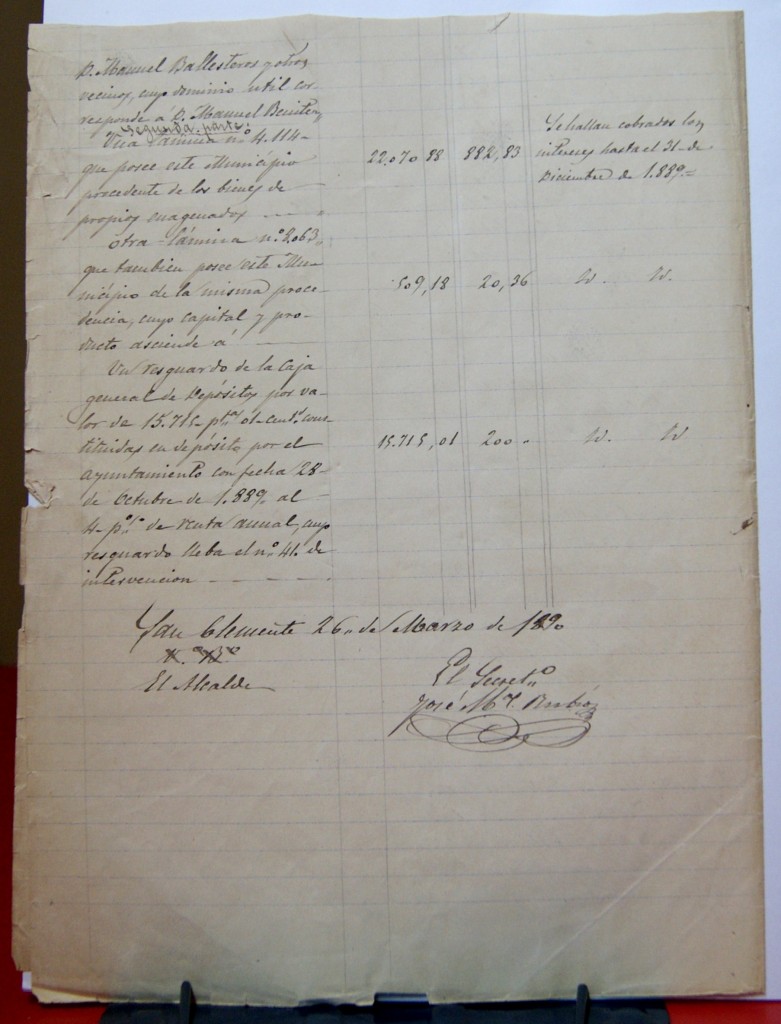 D. Manuel Ballesteros y otros
vecinos, cuyo dominio util cor
responde a D. Manuel Benitez
Segunda parte.
Una lámina nº 4.114-
que posee este Municipio
procedente de los bienes de
propios enagenados
22.070 88 882,83
Se hallan cobrados los
intereses hasta el 31 de
Diciembre de 1.889=
Otra lámina nº 2.063,
que tambien posee este Mu-
nicipio de la misma proce-
dencia, cuyo capital y pro-
ducto asciende á
509,18 20,36 Id. Id.
Un resguardo de la Caja
general de Depósitos por va-
lor de 15.715 ptas 01 centº cons-
tituidas en depósito por el
ayuntamiento con fecha 28-
de Octubre de 1.889. al
4 p% de renta anual, cuyo
resguardo lleba el nº 41. de
intervencion
15.715,01 200 Id. Id
San Clemente 26 de Marzo de 1890
Vº Bº
El Alcalde
El Secretº
José Mª Rubio